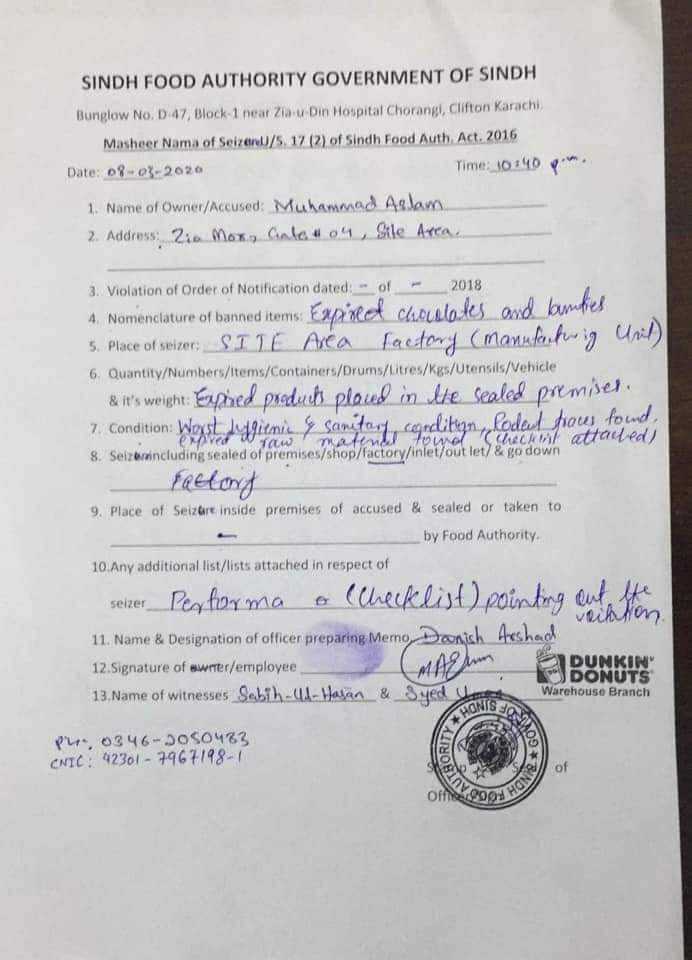 SINDH FOOD AUTHORITY GOVERNMENT OF SINDH
Bunglow No. D-47, Block-1 near Zia-u-Din Hospital Chorangi, Clifton Karachi.
Masheer Nama of Seizer U/S. 17 (2) of Sindh Food Auth. Act. 2016
Date: 08-03-2020 Time: 10:40 p.m.
1. Name of Owner/Accused: Muhammad Aslam
2. Address: Zia Mor, Gate # 04, Site Area.
3. Violation of Order of Notification dated: - of - 2018
4. Nomenclature of banned items: Expired chocolates and
5. Place of seizer: SITE Area Factory (Manufacturig Unit)
6. Quantity/Numbers/Items/Containers/Drums/Litres/Kgs/Utensils/Vehicle
& it's weight: Expired products placed in the sealed premises.
7. Condition: Worst hygienic & sanitary condition, Rodent traces found.
expired raw material found (Checklist attached)
8. including sealed of premises/shop/factory/inlet/out let/ & go down
Factory
9. Place of inside premises of accused & sealed or taken to
- by Food Authority.
10.Any additional list/lists attached in respect of
seizer Performa or (Checklist) pointing out the
11. Name & Designation of officer preparing Memo Danish Arshad
12.Signature of owner/employee
DUNKIN'
DONUTS
Warehouse Branch
13.Name of witnesses Sabih-Ul-Hasan & Syed
0346-2050483
CNIC: 42301-7967198-1
SINDH FOOD AUTHORITY GOVT. OF SINDH
of